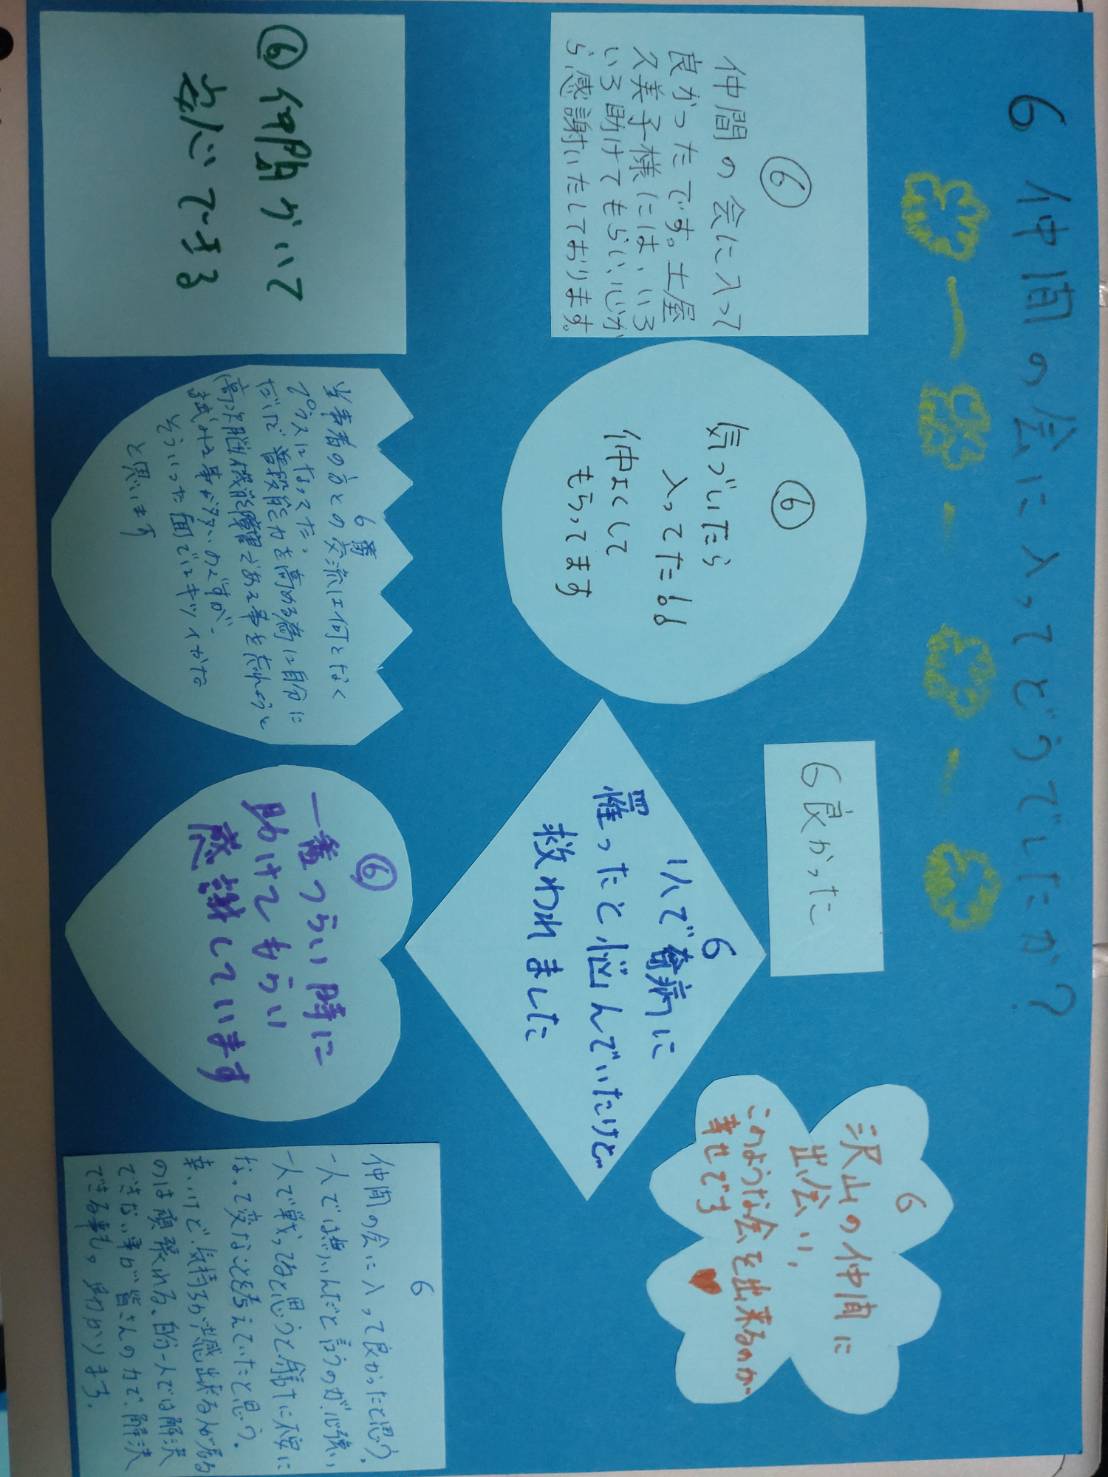 6 仲間の会に入ってどうでしたか?
⑥
仲間の会に入って
良かったです。土屋
久美子様には、いろ
いろ助けてもらい、心か
ら感謝いたしております。
⑥
気づいたら
入ってた!!
仲よくして
もらってます
6良かった
6
沢山の仲間に
出会い、
このような会を出来るのが、
幸せです
⑥仲間がいて
安心できる
6番
当事者の方との交流は何となく
プラスになってた。
だけど普段能力を高める為に自分に
高次脳機能障害である事を忘れようと
試みる事が多いのですが、
そういった面ではキツイかな
と思います
6
1人で奇病に
罹ったと悩んでいたけど
救われました
⑥
一番つらい時に
助けてもらい
感謝しています
6
仲間の会に入って良かったと思う。
一人では無いんだと言うのが心強い
一人で戦ってると思うと余計に不安に
なって変なことを考えていたと思う。
辛いけど、気持ちが共感出来る人が居る
のは頑張れる、自分一人では解決
できない事が皆さんの力で、解決
できる事も。助かります。